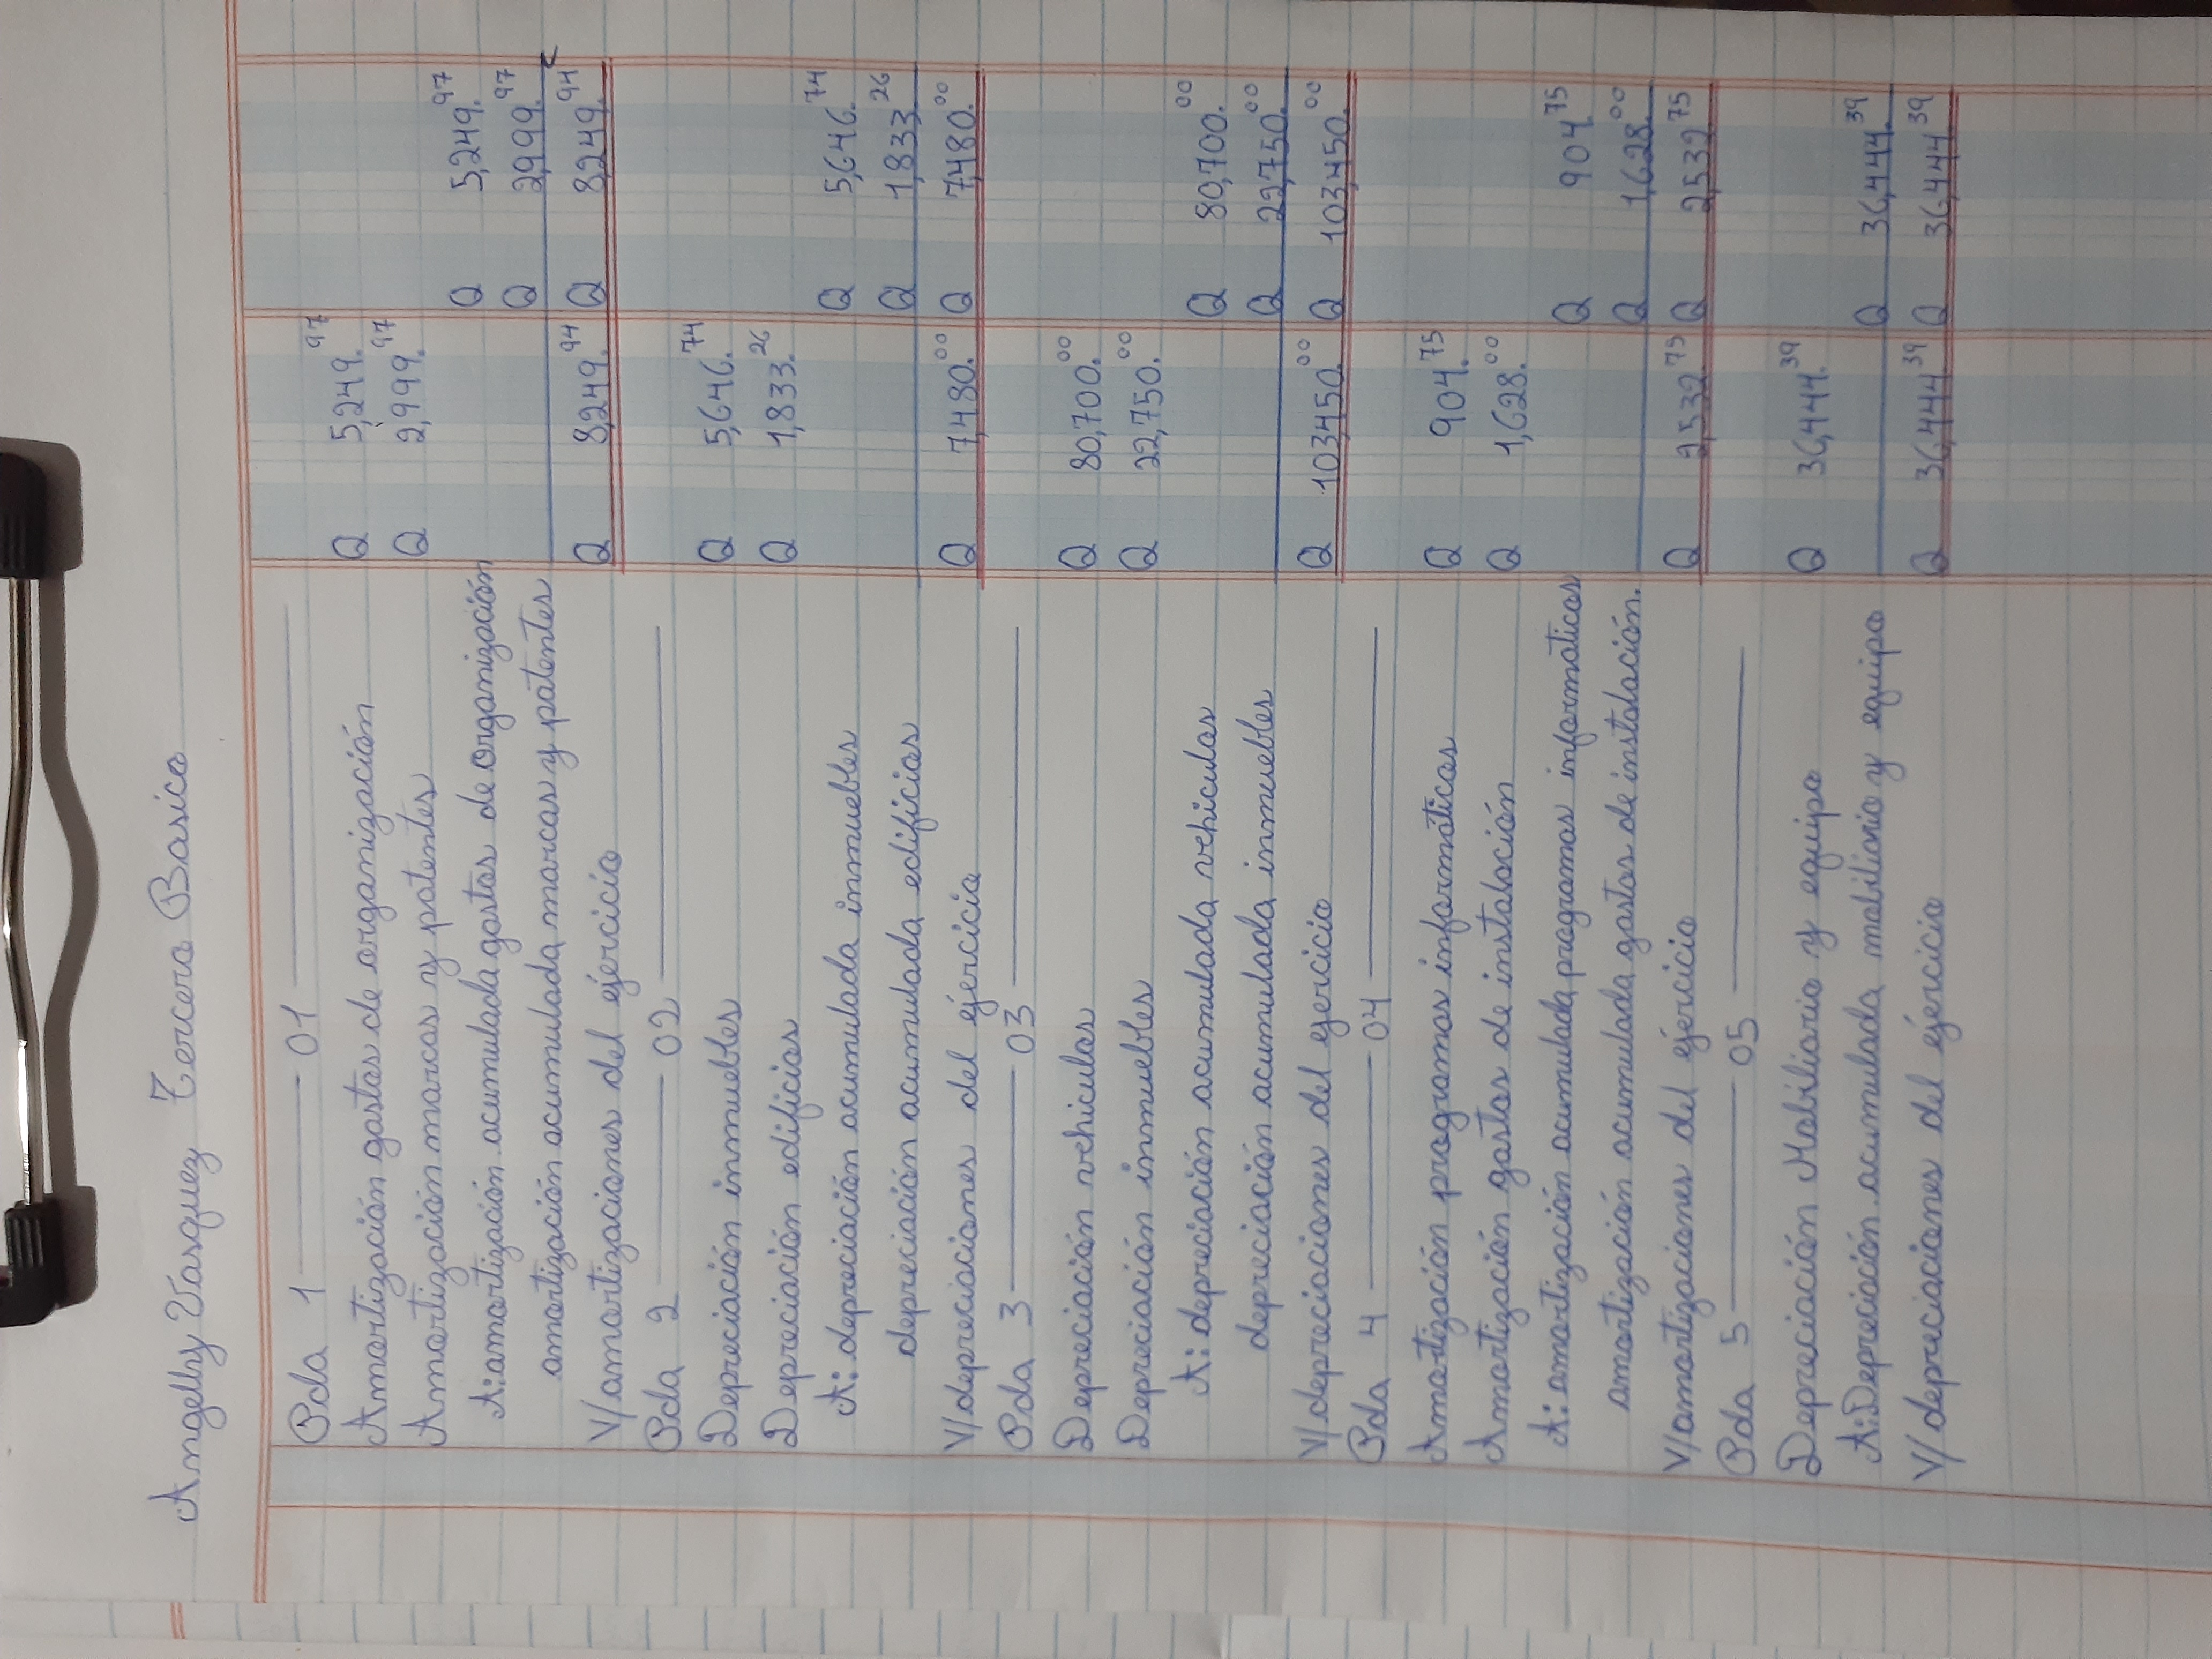 Angelly Vasquez Tercero Basico
Pda 1 01
Amortización gastos de organización Q 5,249.97
Amortización marcas y patentes Q 2,999.97
A: amortización acumulada gastos de organización Q 5,249.97
amortización acumulada marcas y patentes Q 2,999.97
V/amortizaciones del ejercicio Q 8,249.94 Q 8,249.94
Pda 2 02
Depreciación inmuebles Q 5,646.74
Depreciación edificios Q 1,833.26
A: depreciación acumulada inmuebles Q 5,646.74
depreciación acumulada edificios Q 1,833.26
V/depreciaciones del ejercicio Q 7,480.00 Q 7,480.00
Pda 3 03
Depreciación vehiculos Q 80,700.00
Depreciación inmuebles Q 22,750.00
A: depreciación acumulada vehiculos Q 80,700.00
depreciación acumulada inmuebles Q 22,750.00
V/depreciaciones del ejercicio Q 103,450.00 Q 103,450.00
Pda 4 04
Amortización programas informáticos Q 904.75
Amortización gastos de instalación Q 1,628.00
A: amortización acumulada programas informaticos Q 904.75
amortización acumulada gastos de instalación. Q 1,628.00
V/amortizaciones del ejercicio Q 2,532.75 Q 2,532.75
Pda 5 05
Depreciación Mobiliario y equipo Q 36,444.39
A: Depreciación acumulada mobiliario y equipo Q 36,444.39
V/depreciaciones del ejercicio Q 36,444.39 Q 36,444.39